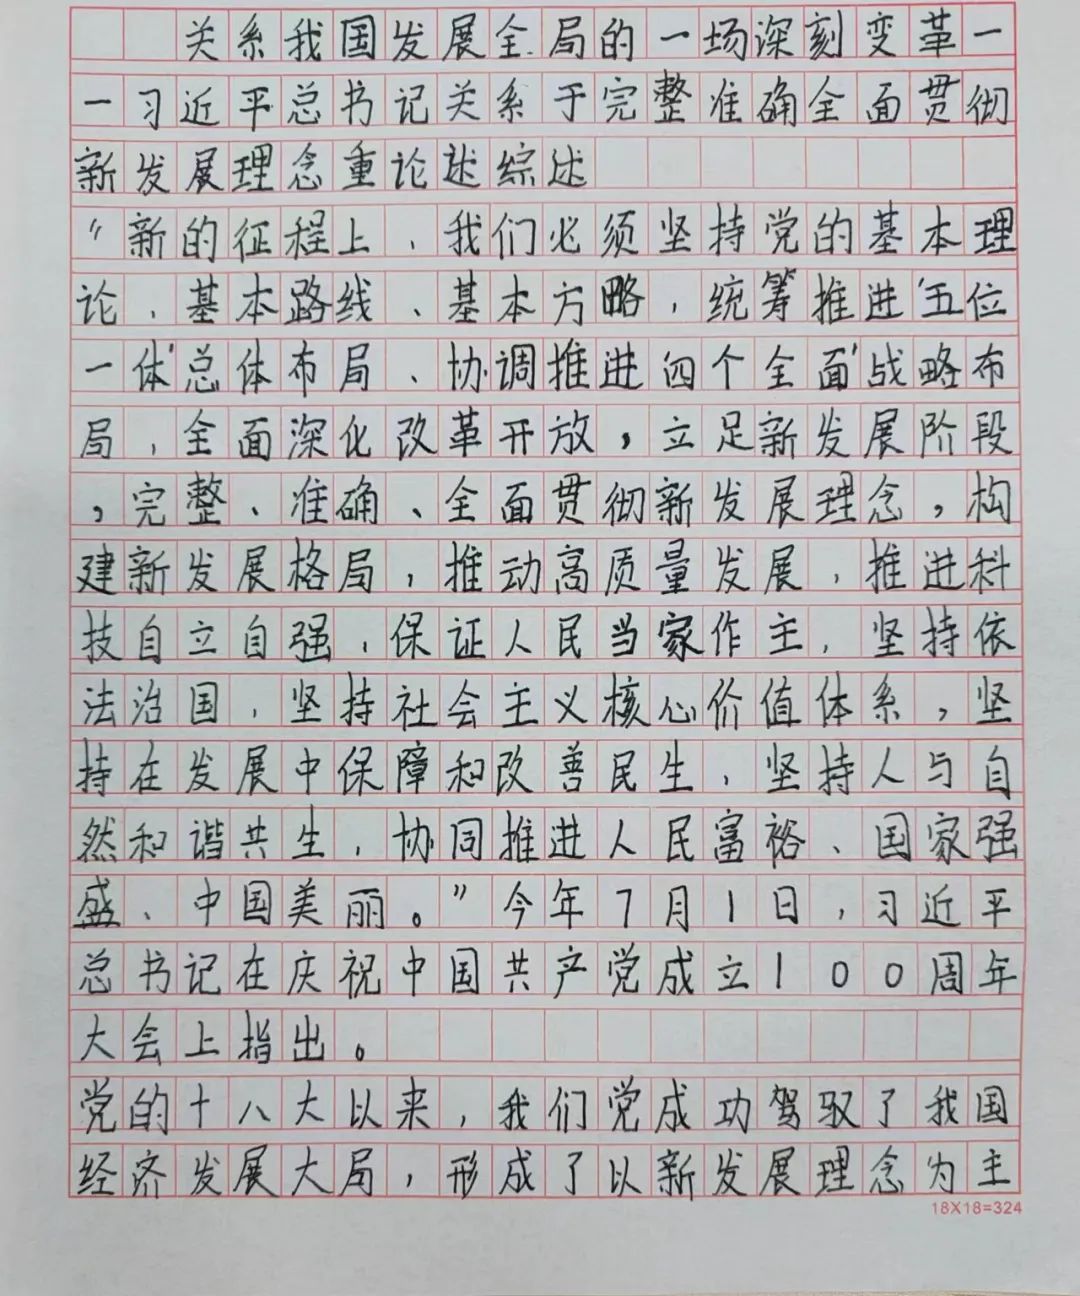 关系我国发展全局的一场深刻变革一
一习近平总书记关系于完整准确全面贯彻
新发展理念重论述综述
“新的征程上,我们必须坚持党的基本理
论、基本路线、基本方略,统筹推进“五位
一体”总体布局、协调推进四个全面”战略布
局,全面深化改革开放,立足新发展阶段
,完整、准确、全面贯彻新发展理念,构
建新发展格局,推动高质量发展,推进科
技自立自强,保证人民当家作主,坚持依
法治国,坚持社会主义核心价值体系,坚
持在发展中保障和改善民生,坚持人与自
然和谐共生,协同推进人民富裕、国家强
盛、中国美丽。”今年7月1日,习近平
总书记在庆祝中国共产党成立100周年
大会上指出。
党的十八大以来,我们党成功驾驭了我国
经济发展大局,形成了以新发展理念为主
18X18=324